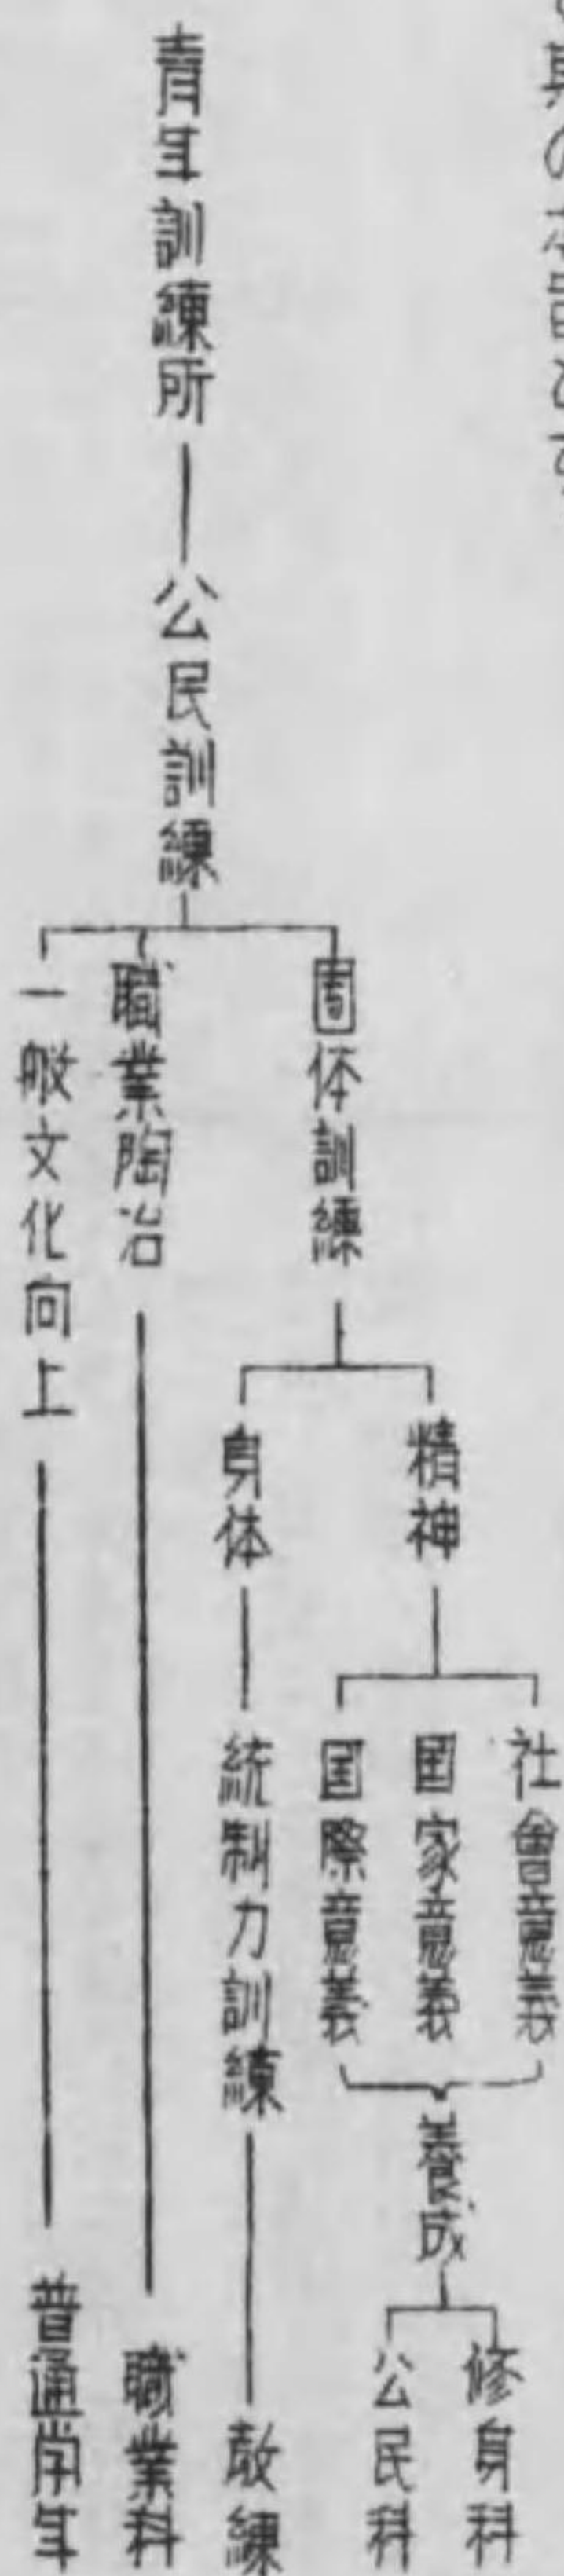 青年訓練所
公民訓練
団体訓練
精神
社會意義
国家意義
国際意義
養成
修身科
公民科
身体
統制力訓練
教練
職業陶冶
職業科
一般文化向上
普通学年